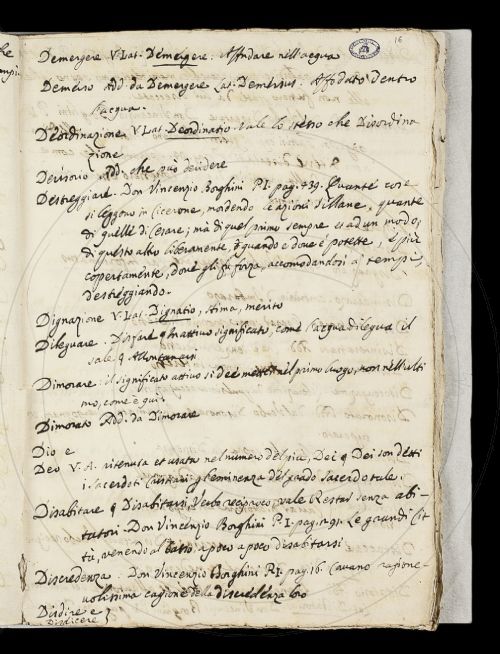 16
Demergere V. Lat. Demergere. Affondare nell'acqua
Demerso Add. da Demergere Lat. Demersus. Affodato dentro
l'acqua.
Deordinazione V. Lat. Deordinatio. vale lo stesso che Disordina
zione
Decisorio Add. che può decidere
Destreggiare. Don Vincenzio Borghini P.I. pag. 439. Quante cose
si leggono in Cicerone, mordendo le azioni Sillane, quante
di quelle di Cesare; ma di quel primo sempre e ad un modo;
di questo altro liberamente quando e dove potette, e più
copertamente, dove gli fu forza, accomodandosi a' tempi,
destreggiando.
Dignazione V. Lat. Dignatio, stima, merito
Dileguare. Disfare in attivo significato, come l'acqua dilegua il
sale q Allontanarsi
Dimorare. il significato attivo si dee mettere nel primo luogo, non nell'ulti
mo, come è qui.
Dimorato Add. da Dimorare
Dio e
Deo V. A. ritenuta et usata nel numero del più, Dei q Dei son detti
i sacerdoti Cristiani, p l'eminenza del grado sacerdotale.
Disabitare q Disabitarsi, Verbo reciproco, vale Restar senza abi-
tatori. Don Vincenzio Borghini P.I. pag. 291. Le grandi Cit
tà, venendo al basso, a poco a poco disabitarsi
Discredenza. Don Vincenzio Borghini P.I. pag. 16. Cavano ragione-
volissima cagione della discredenza loro
Disdire e
Disdicere